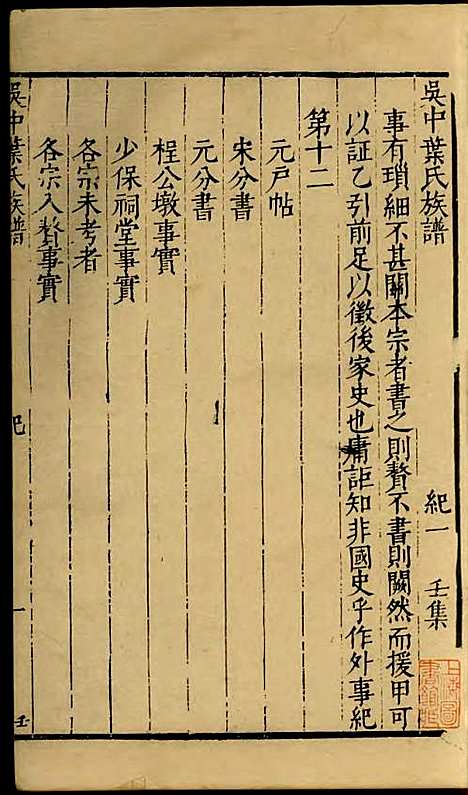 吳中葉氏族譜 紀一 壬集
事有瑣細不甚關本宗者書之則贅不書則闕然而援甲可
以証乙引前足以徵後家史也庸詎知非國史乎作外事紀
第十二
元戸帖
宋分書
元分書
桯公墩事實
少保祠堂事實
各宗未考者
各宗入贅事實
吳中葉氏族譜 紀 一 壬
上海圖
書館藏